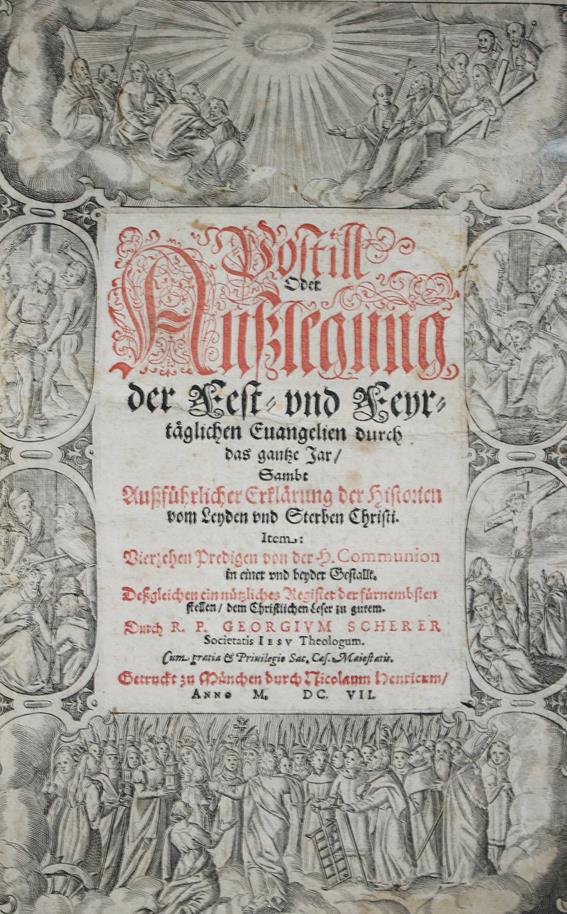 Postill
Oder
Außlegung
der Fest- vnd Feyr-
täglichen Euangelien durch
das gantze Jar/
Sambt
Außführlicher Erklärung der Historien
vom Leyden vnd Sterben Christi.
Item:
Vierzehen Predigen von der H. Communion
in einer vnd beyder Gestallt.
Deßgleichen ein nützliches Register der fürnembsten
stellen/ dem Christlichen Leser zu gutem.
Durch R. P. GEORGIVM SCHERER
Societatis IESV Theologum.
Cum gratia & Priuilegio Sac. Cæs. Maiestatis.
Getruckt zu München durch Nicolaum Henricum/
ANNO M. DC. VII.